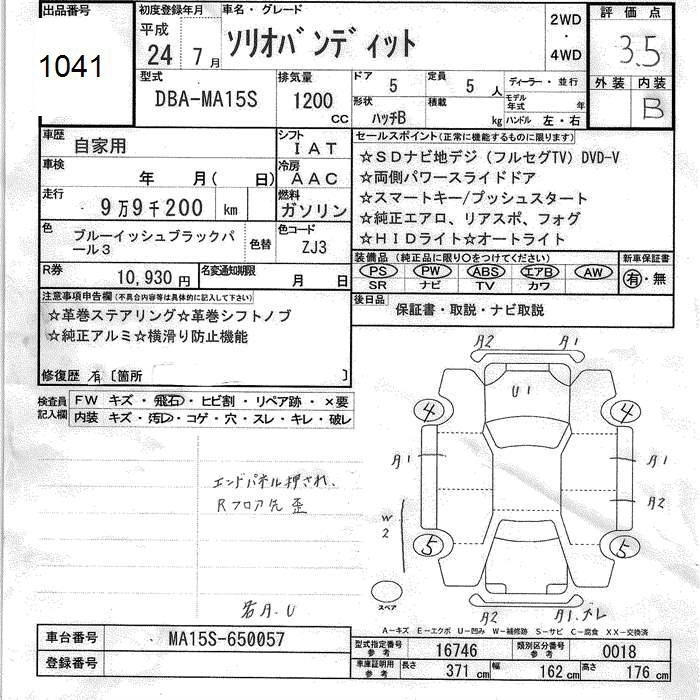 出品番号
1041
初度登録年月
平成
24 7月
車名・グレード
ソリオバンディット
2WD
・
4WD
評価点
3.5
外装 内装
B
型式
DBA-MA15S
排気量
1200
CC
ドア
5
定員
5人
ディーラー・並行
形状
ハッチB
積載
kg
モデル年式
年
ハンドル 左・右
車歴
自家用
シフト
IAT
車検
年 月( 日)
冷房
AAC
走行
9万9千200 km
燃料
ガソリン
色
ブルーイッシュブラックパ
ール3
色替
色コード
ZJ3
R券
10,930 円
名変通知期限
月 日
セールスポイント(正常に機能するものに限ります)
☆SDナビ地デジ(フルセグTV)DVD-V
☆両側パワースライドドア
☆スマートキー/プッシュスタート
☆純正エアロ、リアスポ、フォグ
☆HIDライト☆オートライト
装備品(純正品に限り○をつけてください)
PS PW ABS エアB AW
SR ナビ TV カワ
新車保証書
有・無
後日品
保証書・取説・ナビ取説
注意事項申告欄(不具合内容等は具体的に記入して下さい)
☆革巻ステアリング☆革巻シフトノブ
☆純正アルミ☆横滑り防止機能
修復歴 有 〔箇所 〕
検査員
記入欄
FW キズ・飛石・ヒビ割・リペア跡・×要
内装 キズ・汚レ・コゲ・穴・スレ・キレ・破レ
エンドパネル押され、
Rフロア先歪
若月.U
A2 A1
U1
4 4
A1 A1
A2
W2
5 5
スペア
A2 A1.ズレ
A―キズ E―エクボ U―凹み W―補修跡 S―サビ C―腐食 XX―交換済
車台番号
MA15S-650057
登録番号
型式指定番号
参考
16746
類別区分番号
参考
0018
車庫証明用
参考
長さ 371 cm 幅 162 cm 高さ 176 cm